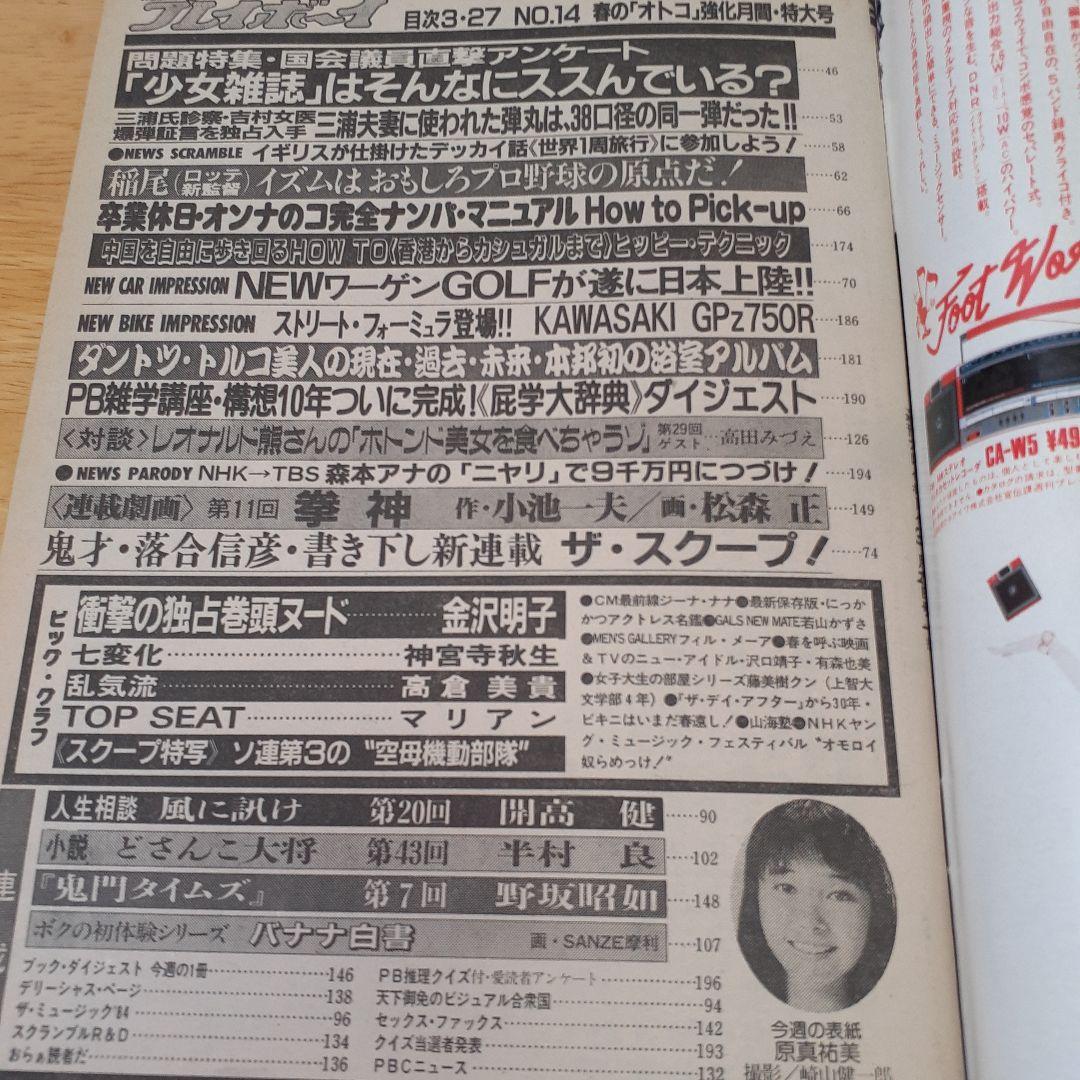 プレイボーイ
目次3・27 NO.14 春の「オトコ」強化月間・特大号
問題特集・国会議員直撃アンケート
「少女雑誌」はそんなにススんでいる?……46
三浦氏診察・吉村女医
爆弾証言を独占入手 三浦夫妻に使われた弾丸は、38口径の同一弾だった!!……53
●NEWS SCRAMBLE イギリスが仕掛けたデッカイ話《世界1周旅行》に参加しよう!……58
稲尾(ロッテ新監督)イズムはおもしろプロ野球の原点だ!……62
卒業休日・オンナのコ完全ナンパ・マニュアル How to Pick-up……66
中国を自由に歩き回るHOW TO〈香港からカシュガルまで〉ヒッピー・テクニック……174
NEW CAR IMPRESSION NEWワーゲンGOLFが遂に日本上陸!!……70
NEW BIKE IMPRESSION ストリート・フォーミュラ登場!! KAWASAKI GPz750R……186
ダントツ・トルコ美人の現在・過去・未来・本邦初の浴室アルバム……181
PB雑学講座・構想10年ついに完成!《屁学大辞典》ダイジェスト……190
〈対談〉レオナルド熊さんの「ホトンド美女を食べちゃうゾ」第29回ゲスト…高田みづえ……126
●NEWS PARODY NHK→TBS 森本アナの「ニヤリ」で9千万円につづけ!……194
〈連載劇画〉第11回 拳神 作・小池一夫/画・松森 正……149
鬼才・落合信彦・書き下し新連載 ザ・スクープ!……74
ビッグ・グラフ
衝撃の独占巻頭ヌード……金沢明子
七変化……神宮寺秋生
乱気流……高倉美貴
TOP SEAT……マリアン
《スクープ特写》ソ連第3の“空母機動部隊”
●CM最前線ジーナ・ナナ●最新保存版・にっか
かつアクトレス名鑑●GALS NEW MATE若山かずさ
●MEN'S GALLERYフィル・メーア●春を呼ぶ映画
&TVのニュー・アイドル・沢口靖子・有森也美
●女子大生の部屋シリーズ藤美樹クン(上智大
文学部4年)●『ザ・デイ・アフター』から30年・
ビキニはいまだ春遠し!●山海塾●NHKヤン
グ・ミュージック・フェスティバル“オモロイ
奴らめっけ!”
人生相談 風に訊け 第20回 開高 健……90
小説 どさんこ大将 第43回 半村 良……102
『鬼門タイムズ』 第7回 野坂昭如……148
ボクの初体験シリーズ バナナ白書 画・SANZE摩利……107
ブック・ダイジェスト 今週の1冊……146
デリーシャス・ページ……138
ザ・ミュージック'84……96
スクランブルR&D……134
おらぁ読者だ……136
PB推理クイズ付・愛読者アンケート……196
天下御免のビジュアル合衆国……94
セックス・ファックス……142
クイズ当選者発表……193
PBCニュース……132
今週の表紙
原真祐美
撮影/崎山健一郎
Foot Wor
CA-W5 ¥49